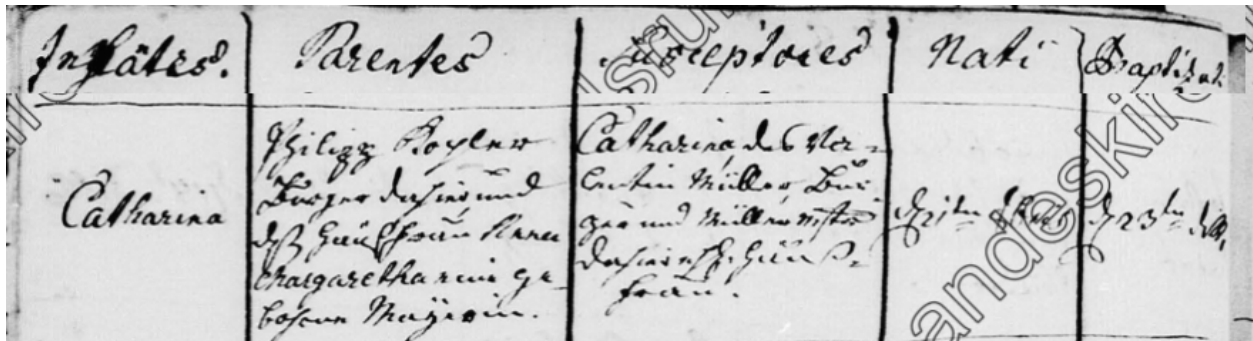 Infantes. Parentes Susceptores Nati Baptizati
Catharina
Philipp
Burger dahier und
deß Haußfrau Anna
Margaretha eine ge-
bohrne Mayerin.
Catharina, des Va-
lentin Müller, Bur-
ger und Müller
dahier Hauß-
frau.
d 21ten
d 23ten
landeskirche